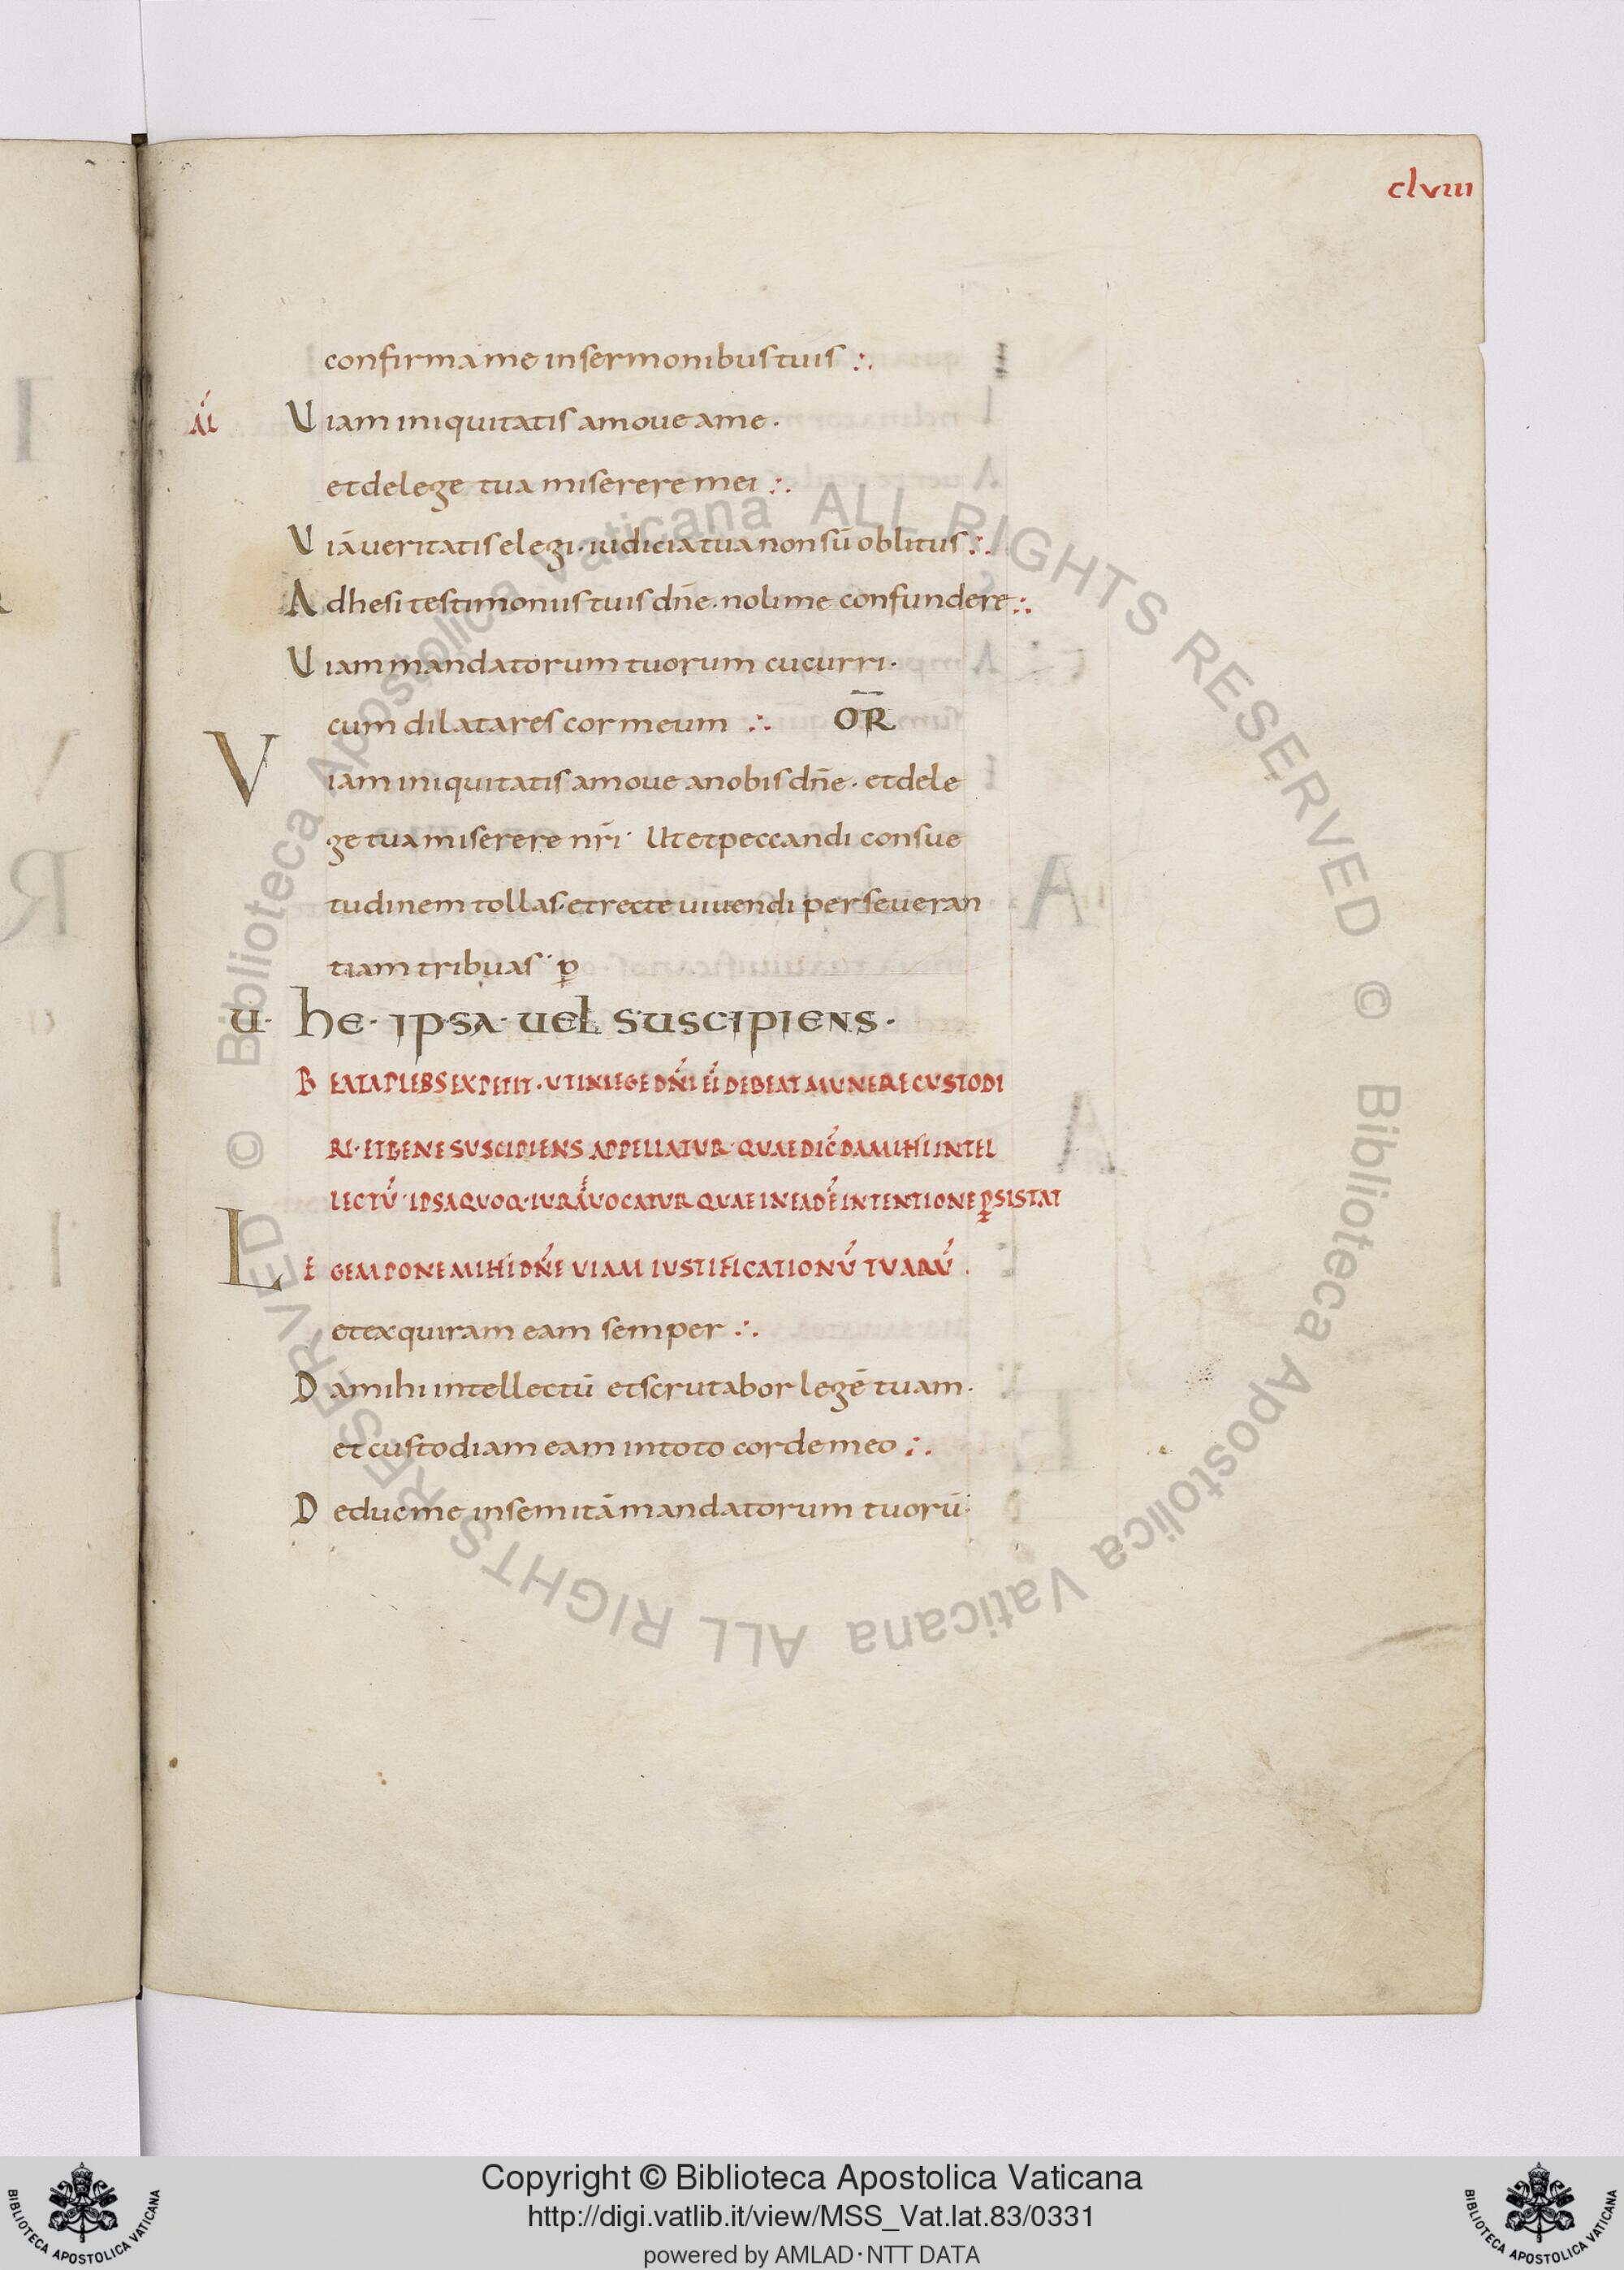 clviii
confirma me in sermonibus tuis ∴
Al Uiam iniquitatis amoue a me ·
et de lege tua miserere mei ∴
Uiā ueritatis elegi · iudicia tua non sū oblitus ∴
Adhesi testimoniis tuis dn̄e · noli me confundere ∴
Uiam mandatorum tuorum cucurri ·
cum dilatares cor meum ∴ OR̄
Viam iniquitatis amoue a nobis dn̄e · et de le
ge tua miserere nr̄i · Ut et peccandi consue
tudinem tollas · et recte uiuendi perseueran
tiam tribuas · p
u · he · ipsa · uel suscipiens ·
BEATA PLEBS EXPETIT · UT IN LEGE DN̄I EI DEBEAT MUNERE CUSTODI
RI · ET BENE SUSCIPIENS APPELLATUR · QUAE DIC̄ DA MIHI INTEL
LECTŪ · IPSA QUOQ · IURĀ UOCATUR QUAE IN EADĒ INTENTIONE PSISTAT
LEGEM PONE MIHI DN̄E UIAM IUSTIFICATIONŪ TUARŪ ·
et exquiram eam semper ∴
Da mihi intellectū et scrutabor legē tuam ·
et custodiam eam in toto corde meo ∴
Deduc me in semitā mandatorum tuorū ·
© Biblioteca Apostolica Vaticana ALL RIGHTS RESERVED © Biblioteca Apostolica Vaticana ALL RIGHTS RESERVED
Copyright © Biblioteca Apostolica Vaticana
http://digi.vatlib.it/view/MSS_Vat.lat.83/0331
powered by AMLAD·NTT DATA
BIBLIOTECA APOSTOLICA VATICANA
BIBLIOTECA APOSTOLICA VATICANA